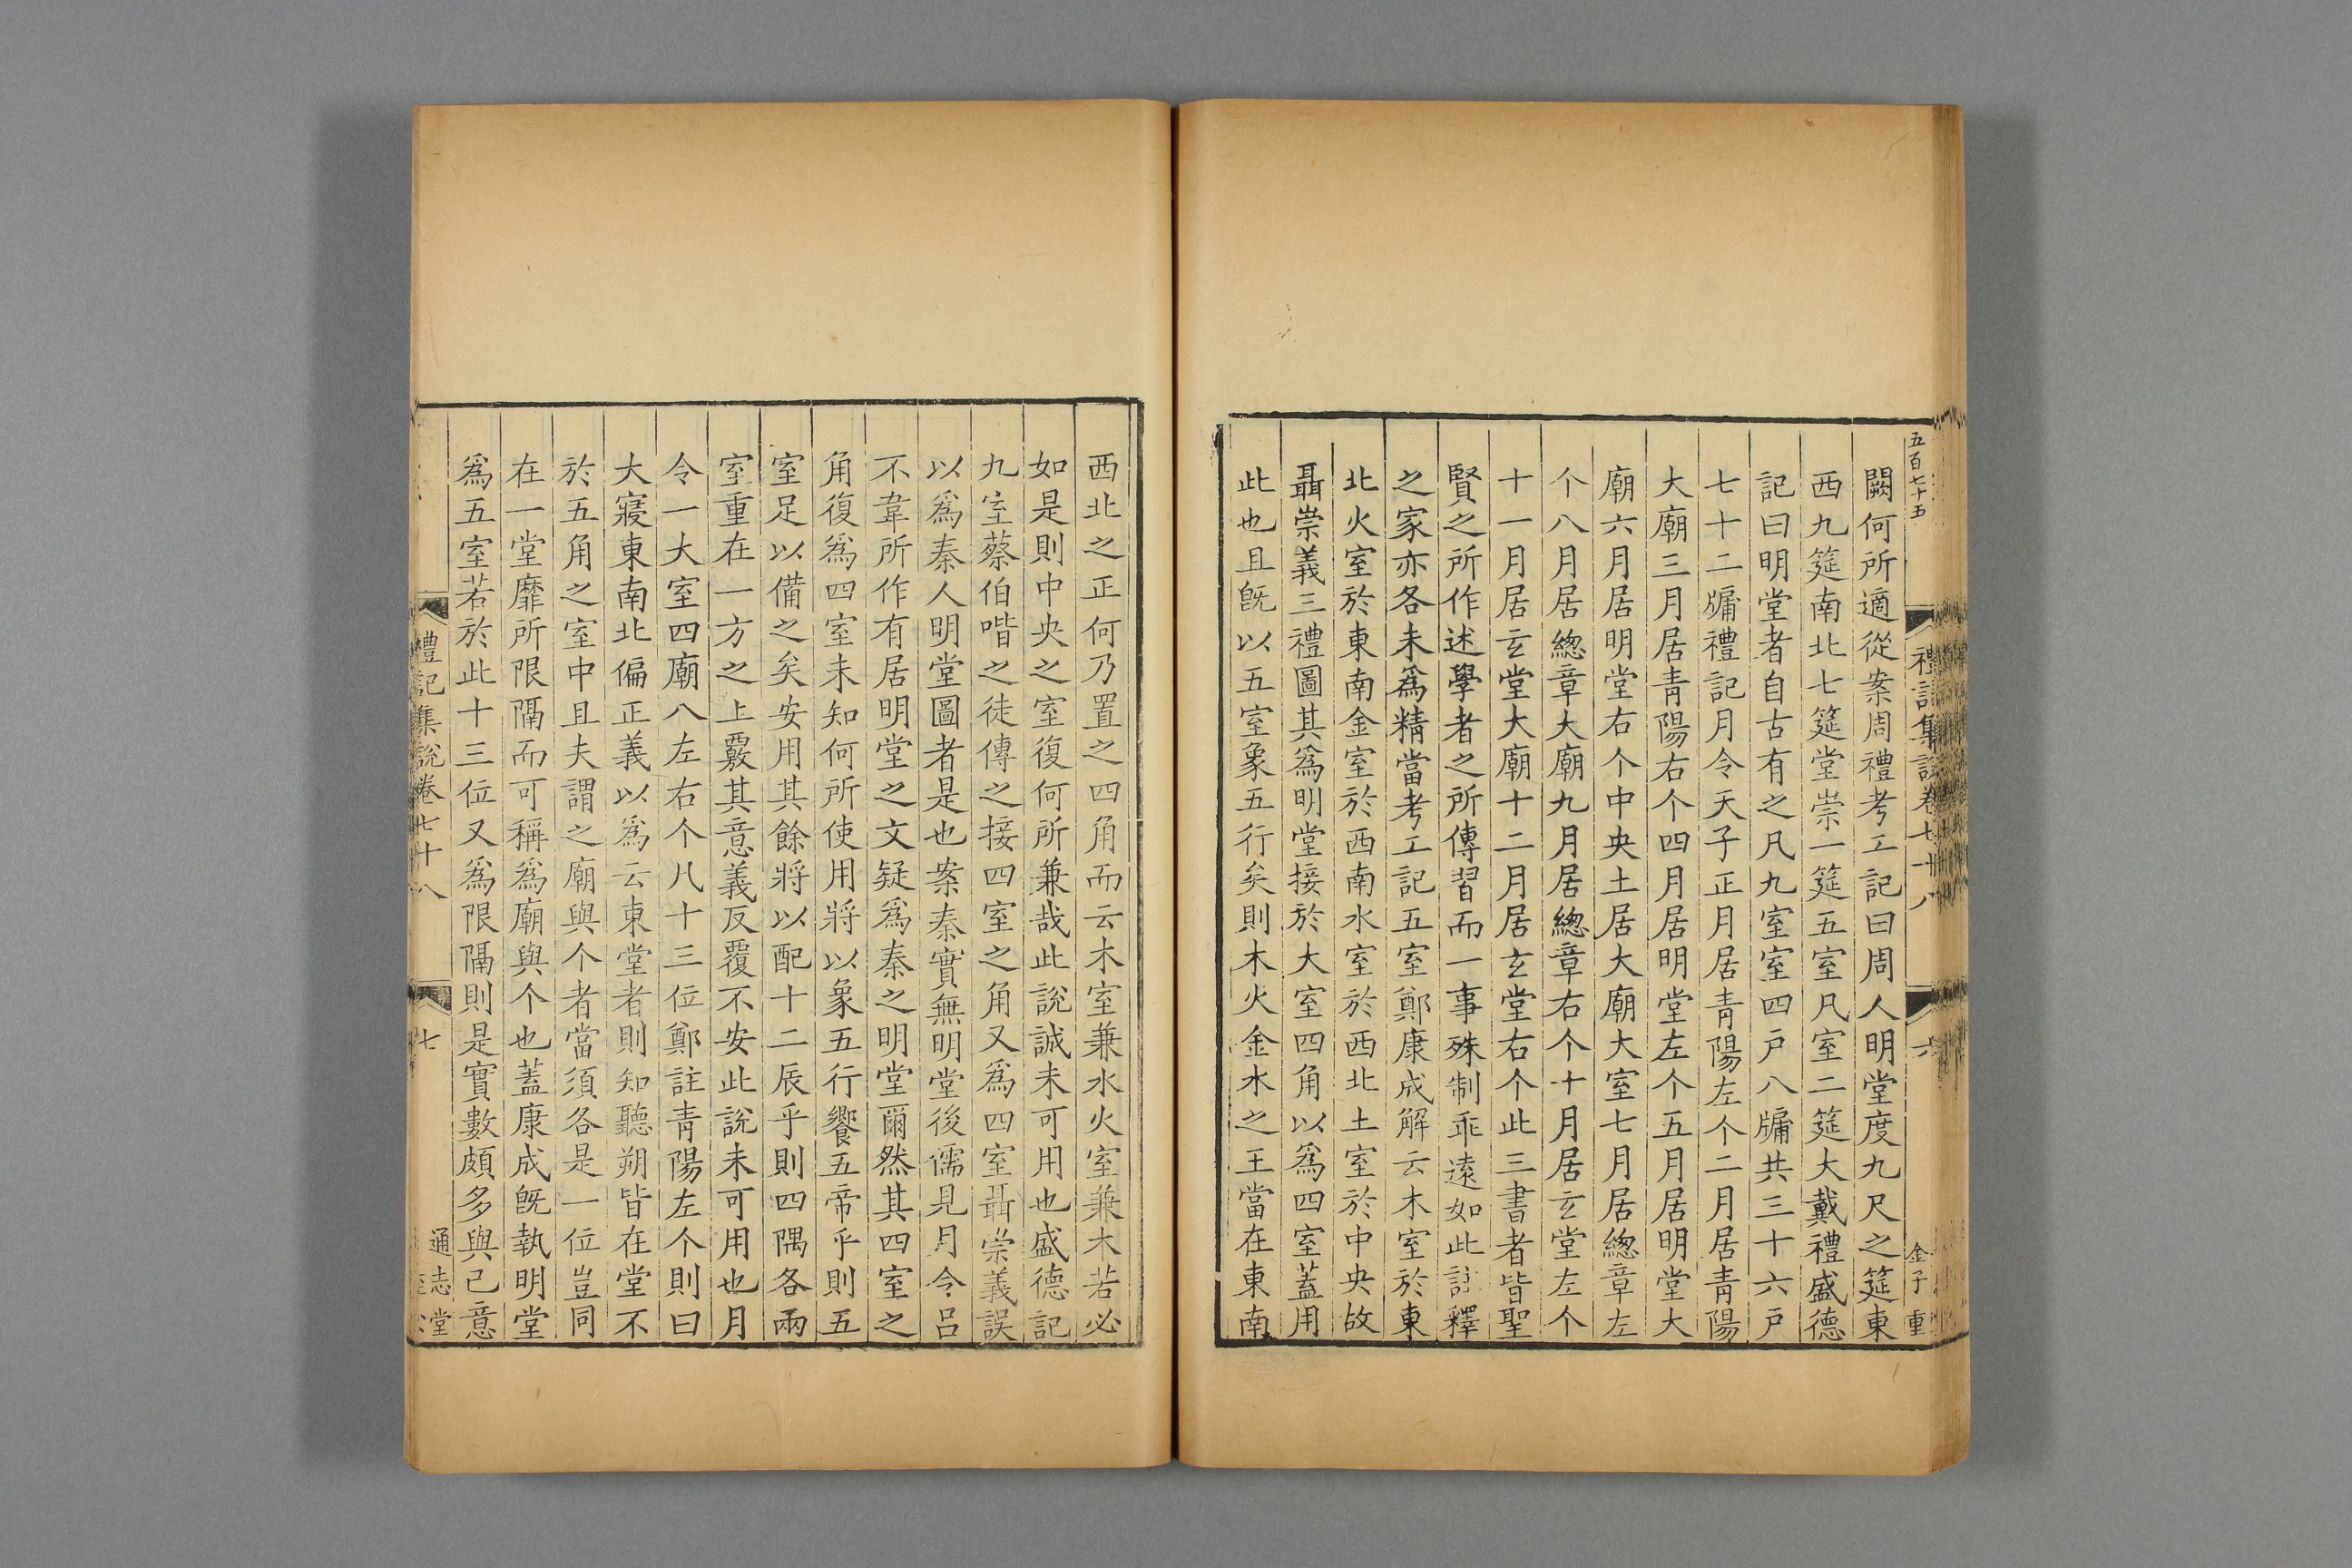 五百七十五
禮記集說卷七十八
六
金子重
闕何所適從案周禮考工記曰周人明堂度九尺之筵東
西九筵南北七筵堂崇一筵五室凡室二筵大戴禮盛德
記曰明堂者自古有之凡九室室四戶八牖共三十六戶
七十二牖禮記月令天子正月居靑陽左个二月居靑陽
大廟三月居靑陽右个四月居明堂左个五月居明堂大
廟六月居明堂右个中央土居大廟大室七月居緫章左
个八月居緫章大廟九月居緫章右个十月居玄堂左个
十一月居玄堂大廟十二月居玄堂右个此三書者皆聖
賢之所作述學者之所傳習而一事殊制乖遠如此註釋
之家亦各未爲精當考工記五室鄭康成解云木室於東
北火室於東南金室於西南水室於西北土室於中央故
聶崇義三禮圖其爲明堂接於大室四角以爲四室蓋用
此也且旣以五室象五行矣則木火金水之王當在東南
西北之正何乃置之四角而云木室兼水火室兼木若必
如是則中央之室復何所兼哉此說誠未可用也盛德記
九室蔡伯喈之徒傳之接四室之角又爲四室聶崇義誤
以爲秦人明堂圖者是也案秦實無明堂後儒見月令呂
不韋所作有居明堂之文疑爲秦之明堂爾然其四室之
角復爲四室未知何所使用將以象五行饗五帝乎則五
室足以備之矣安用其餘將以配十二辰乎則四隅各兩
室重在一方之上覈其意義反覆不安此說未可用也月
令一大室四廟八左右个凡十三位鄭註靑陽左个則曰
大寢東南北偏正義以爲云東堂者則知聽朔皆在堂不
於五角之室中且夫謂之廟與个者當須各是一位豈同
在一堂靡所限隔而可稱爲廟與个也蓋康成旣執明堂
爲五室若於此十三位又爲限隔則是實數頗多與己意
禮記集說卷七十八
七
通志堂